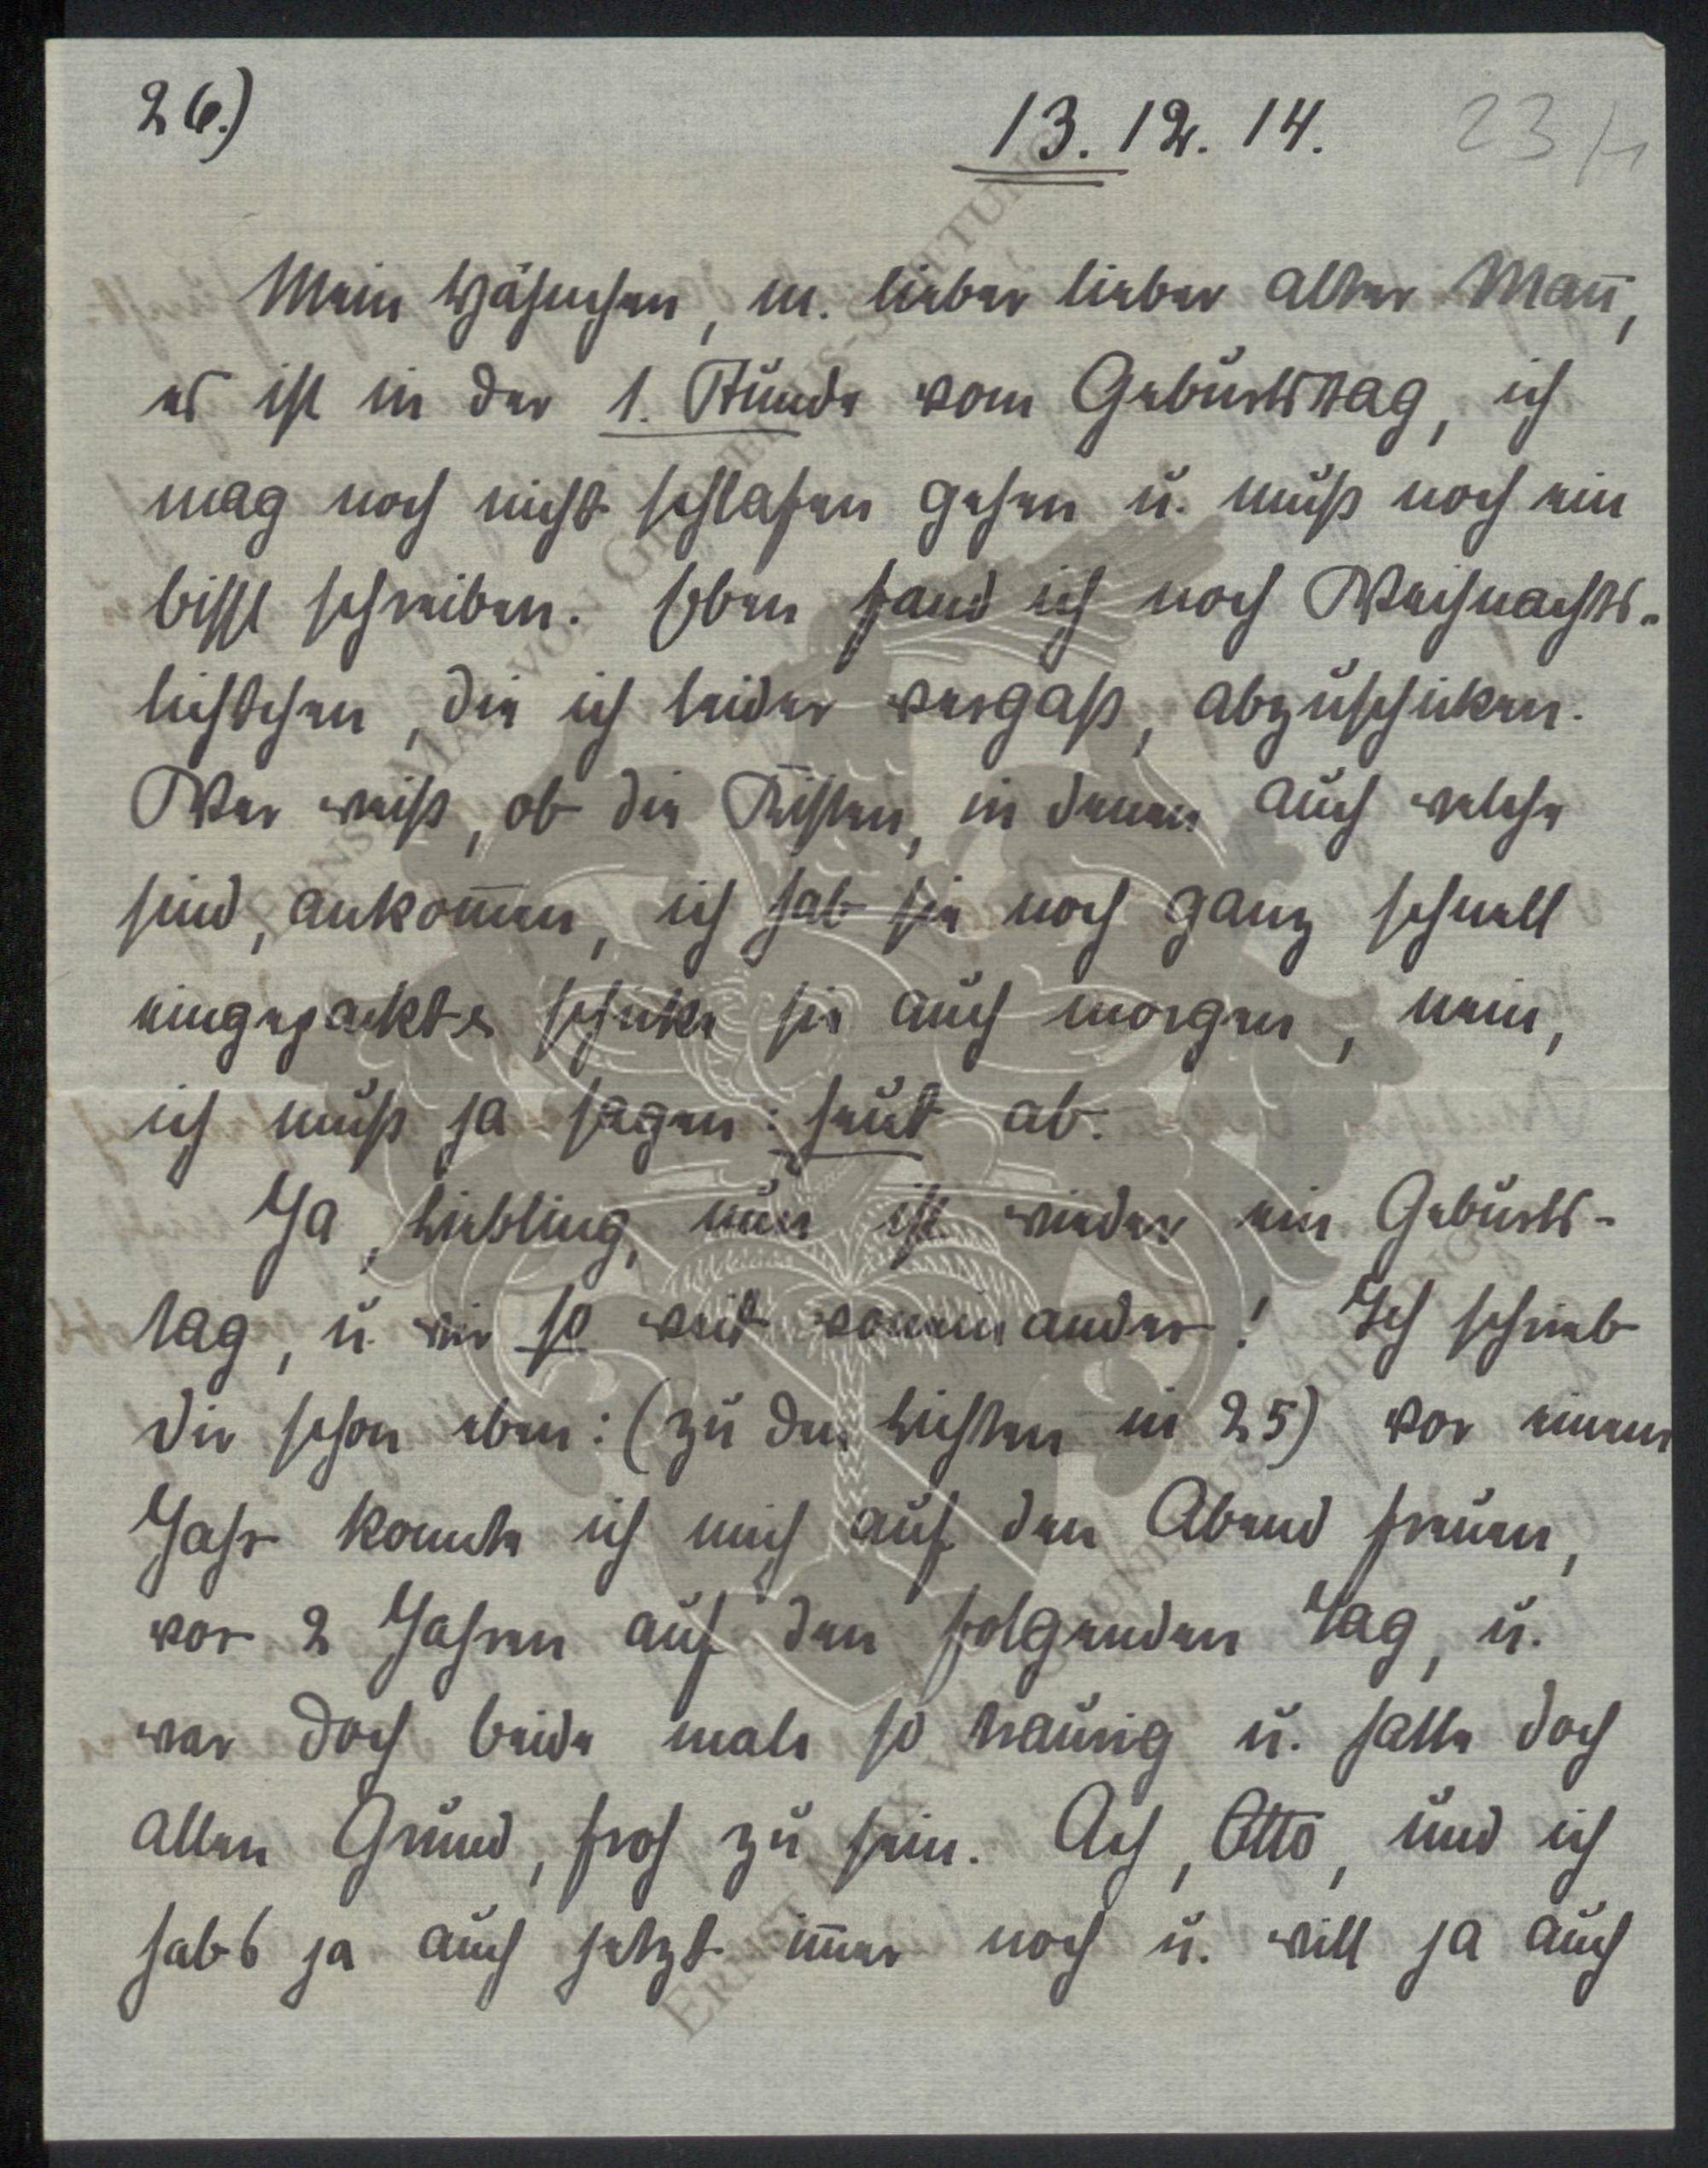 26.) 13. 12. 14. 23/1
Mein Hähnchen, m. lieber lieber alter Mañ,
es ist in der 1. Stunde vom Geburtstag, ich
mag noch nicht schlafen gehen u. muß noch ein
bissl schreiben. Eben fand ich noch Weihnachts-
lichtchen, die ich leider vergaß, abzuschicken.
Wer weiß, ob die Kisten, in denen auch welche
sind, ankom̄en, ich hab sie noch ganz schnell
eingepackt & schicke sie auch morgen, nein,
ich muß ja sagen: heut ab.
Ja, Liebling, nun ist wieder ein Geburts-
tag, u. wir so weit voneinander! Ich schrieb
dir schon eben: (zu den Lichten in 25) vor einem
Jahr konnte ich mich auf den Abend freuen,
vor 2 Jahren auf den folgenden Tag, u.
war doch beide male so traurig u. hatte doch
allen Grund, froh zu sein. Ach, Otto, und ich
habs ja auch jetzt im̄er noch u. will ja auch
ERNST MAX VON GRUNELIUS-STIFTUNG
ERNST MAX VON GRUNELIUS-STIFTUNG